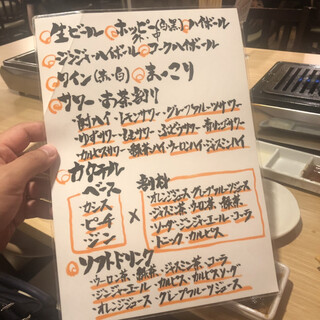 生ビール ホッピー(白黒) ハイボール
外、中
ジンジャーハイボール コークハイボール
ワイン(赤・白) まっこり
サワー お茶割り
酎ハイ・レモンサワー・グレープフルーツサワー
ゆずサワー・うめサワー・ぶどうサワー・青りんごサワー
カルピスサワー・緑茶ハイ・ウーロンハイ・ジャスミンハイ
カクテル
ベース 割材
・カシス
・ピーチ
・ジン
×
・オレンジジュース・グレープフルーツジュース
・ジャスミン茶・ウーロン茶・緑茶
・ソーダ・ジンジャーエール・コーラ
・トニック・カルピス
ソフトドリンク
・ウーロン茶・緑茶・ジャスミン茶・コーラ
・ジンジャーエール・カルピス・カルピスソーダ
・オレンジジュース・グレープフルーツジュース